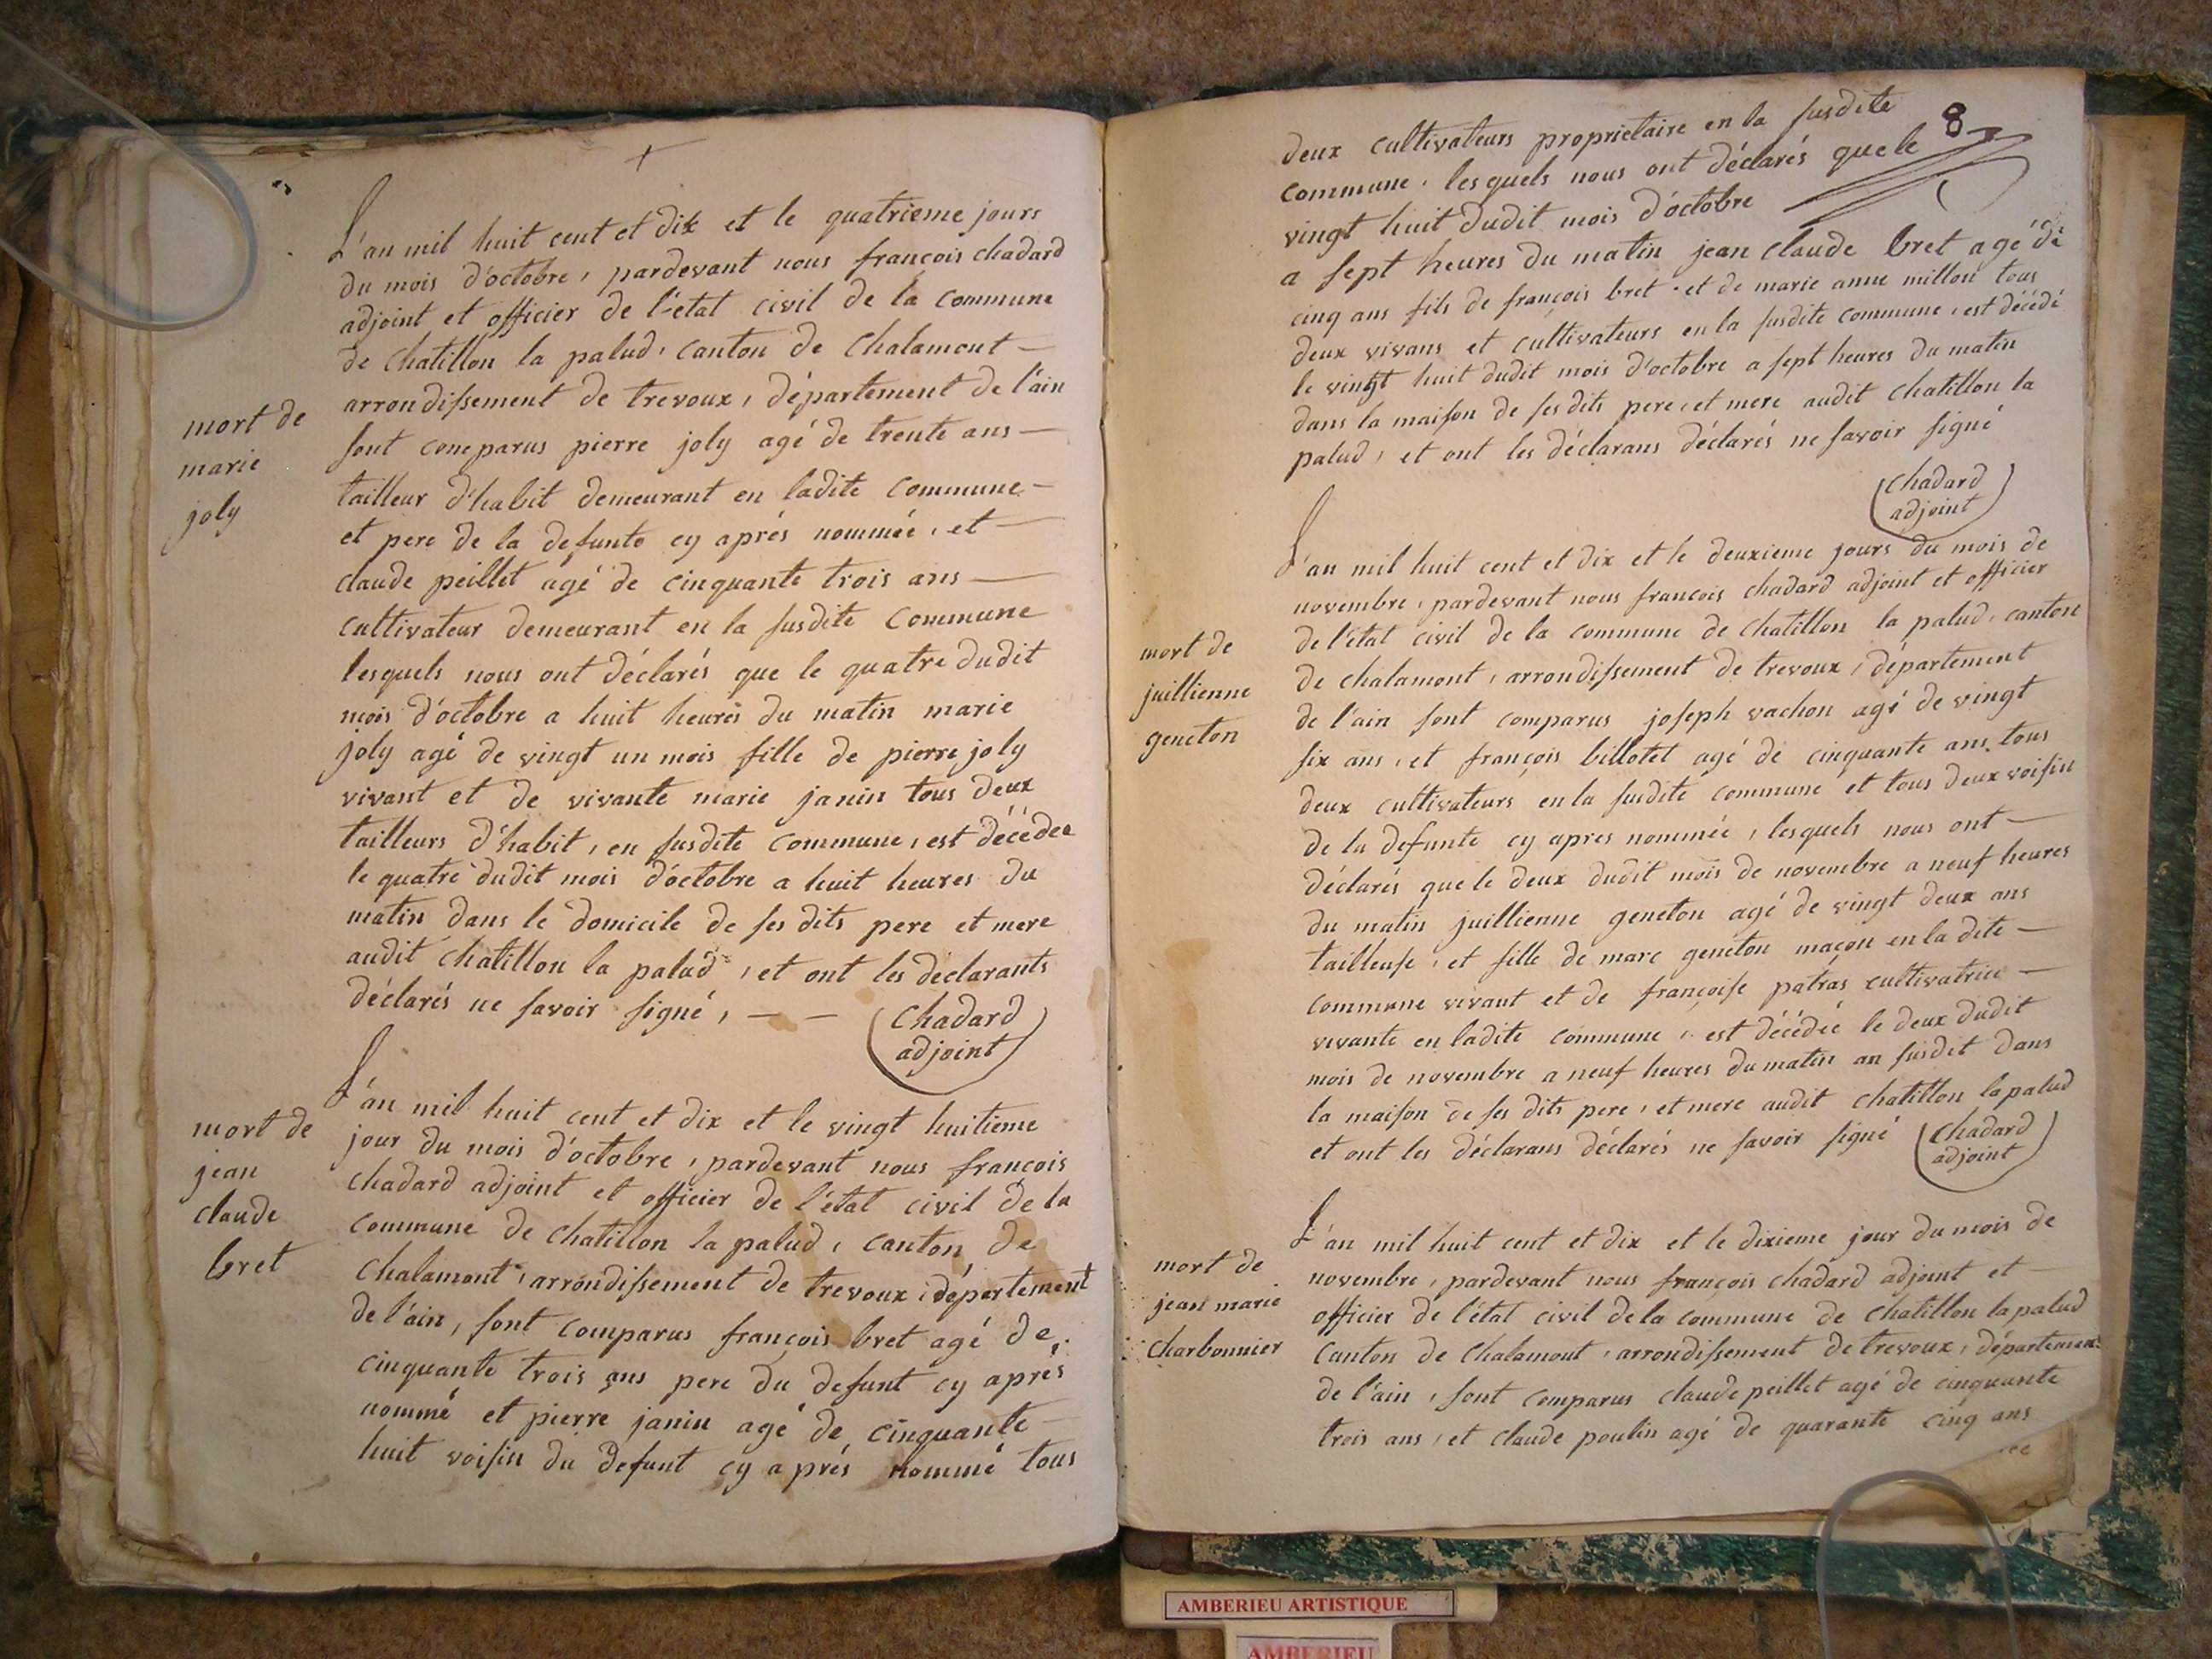 +
L'an mil huit cent et dix et le quatrieme jours
du mois d'octobre, pardevant nous francois chadard
adjoint et officier de l'état civil de la commune
de chatillon la palud, canton de chalamont —
arrondissement de trevoux, département de l'ain
mort de
marie
joly
sont comparus pierre joly agé de trente ans —
tailleur d'habit demeurant en ladite commune —
et pere de la defunte cy aprés nommée, et —
claude peillet agé de cinquante trois ans —
cultivateur demeurant en la susdite commune
lesquels nous ont déclarés que le quatre dudit
mois d'octobre a huit heures du matin marie
joly agé de vingt un mois fille de pierre joly
vivant et de vivante marie janin tous deux
tailleurs d'habit, en susdite commune, est décédee
le quatre dudit mois d'octobre a huit heures du
matin dans le domicile de ses dits pere et mere
audit chatillon la palud, et ont les declarants
déclarés ne savoir signé, — —
chadard
adjoint
mort de
jean
claude
bret
L'an mil huit cent et dix et le vingt huitieme
jour du mois d'octobre, pardevant nous françois
chadard adjoint et officier de l'état civil de la
commune de chatillon la palud, canton de
chalamont, arrondissement de trevoux, département
de l'ain, sont comparus françois bret agé de
cinquante trois ans pere du defunt cy aprés
nommé et pierre janin agé de cinquante —
huit voisin du defunt cy aprés nommé tous
8
deux cultivateurs proprietaire en la susdite
commune, lesquels nous ont déclarés que le
vingt huit dudit mois d'octobre
a sept heures du matin jean claude bret agé de
cinq ans fils de françois bret et de marie anne millon tous
deux vivans et cultivateurs en la susdite commune, est décédé
le vingt huit dudit mois d'octobre a sept heures du matin
dans la maison de ses dits pere, et mere audit chatillon la
palud, et ont les déclarans déclarés ne savoir signé
chadard
adjoint
mort de
juillienne
geneton
L'an mil huit cent et dix et le deuxieme jours du mois de
novembre, pardevant nous francois chadard adjoint et officier
de l'état civil de la commune de chatillon la palud, canton
de chalamont, arrondissement de trevoux, département
de l'ain sont comparus joseph vachon agé de vingt
six ans, et françois billotet agé de cinquante ans tous
deux cultivateurs en la susdite commune et tous deux voisin
de la defunte cy apres nommée, lesquels nous ont —
déclarés que le deux dudit mois de novembre a neuf heures
du matin juillienne geneton agé de vingt deux ans
tailleuse, et fille de marc geneton maçon en la dite —
commune vivant et de françoise patras cultivatrice —
vivante en ladite commune, est décédée le deux dudit
mois de novembre a neuf heures du matin an susdit dans
la maison de ses dits pere, et mere audit chatillon la palud
et ont les déclarans déclarés ne savoir signé
chadard
adjoint
mort de
jean marie
charbonnier
L'an mil huit cent et dix et le dixieme jour du mois de
novembre, pardevant nous françois chadard adjoint et —
officier de l'état civil de la commune de chatillon la palud
canton de chalamont, arrondissement de trevoux, département
de l'ain, sont comparus claude peillet agé de cinquante
trois ans, et claude poulin agé de quarante cinq ans
AMBERIEU ARTISTIQUE
AMBERIEU